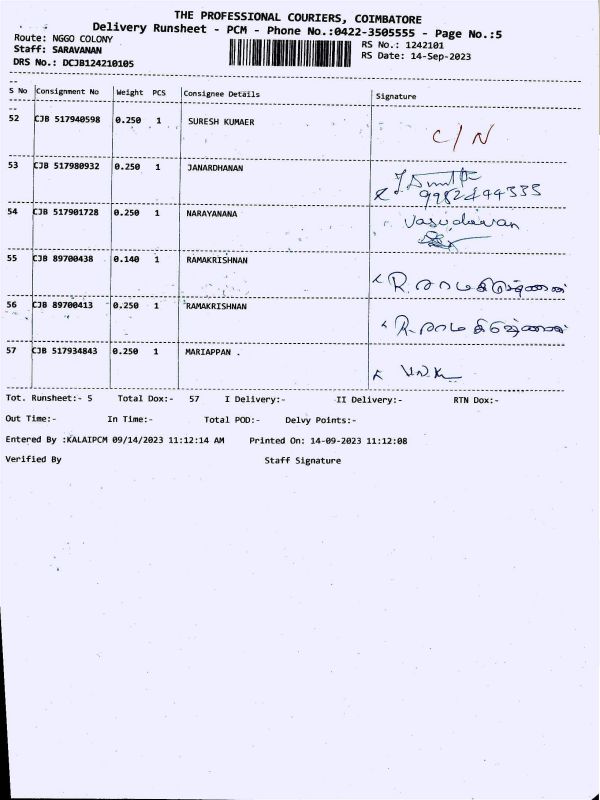 THE PROFESSIONAL COURIERS, COIMBATORE
Delivery Runsheet - PCM - Phone No.:0422-3505555 - Page No.:5
Route: NGGO COLONY
RS No.: 1242101
Staff: SARAVANAN
RS Date: 14-Sep-2023
DRS No.: DCJB124210105
S No Consignment No Weight PCS Consignee Details Signature
S
52 CJB 517940598 0.250 1 SURESH KUMAER C/N
53 CJB 517980932 0.250 1 JANARDHANAN
54 CJB 517901728 0.250 1 NARAYANANA Vasudevan
55 CJB 89700438 0.140 1 RAMAKRISHNAN R. ராமகிருஷ்ணன்
56 CJB 89700413 0.250 1 RAMAKRISHNAN R. ராமகிருஷ்ணன்
57 CJB 517934843 0.250 1 MARIAPPAN .
Tot. Runsheet:- 5 Total Dox:- 57 I Delivery:- II Delivery:- RTN Dox:-
Out Time:- In Time:- Total POD:- Delvy Points:-
Entered By :KALAIPCM 09/14/2023 11:12:14 AM Printed On: 14-09-2023 11:12:08
Verified By Staff Signature